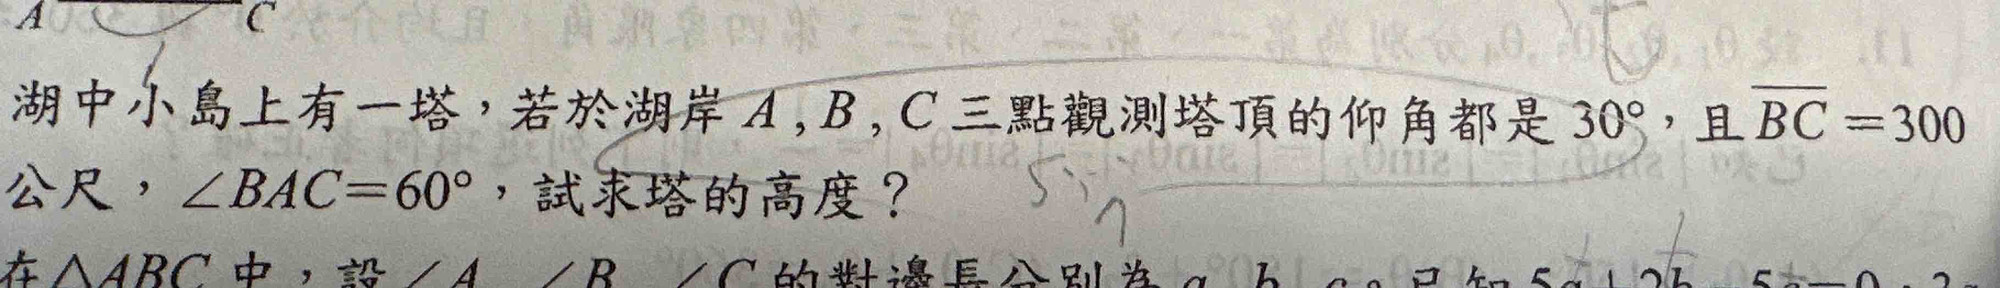 A C
湖中小島上有一塔，若於湖岸 A , B , C 三點觀測塔頂的仰角都是 30°，且 BC = 300
公尺，∠BAC=60°，試求塔的高度？
sin
在△ABC 中，設∠A、∠B、∠C 的對邊長分別為 a、b、c。已知 5a+2b-5c=0，3